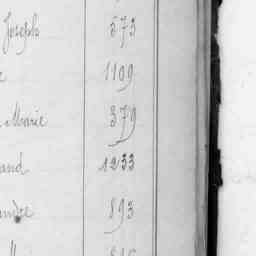 Joseph 573
e 1109
Marie 379
and 1233
andre 893